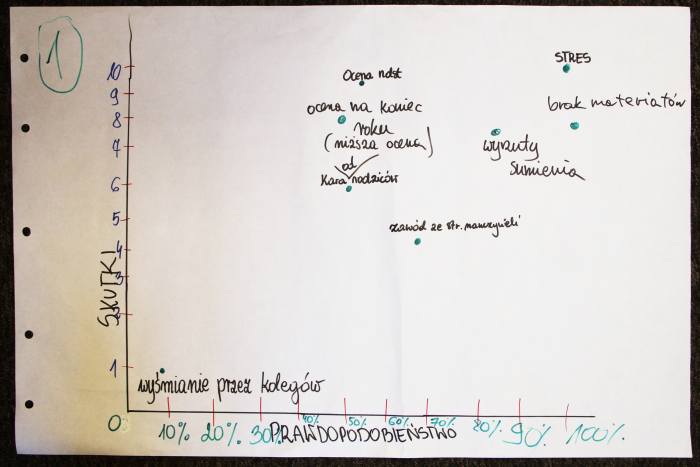 1
SKUTKI
10
9
8
7
6
5
4
3
2
1
0
Ocena ndst
STRES
ocena na koniec
roku
(niższa ocena)
brak materiałów
wyrzuty
sumienia
od
Kara rodziców
zawód ze str. nauczycieli
wyśmianie przez kolegów
10% 20% 30% 40% 50% 60% 70% 80% 90% 100%
PRAWDOPODOBIEŃSTWO